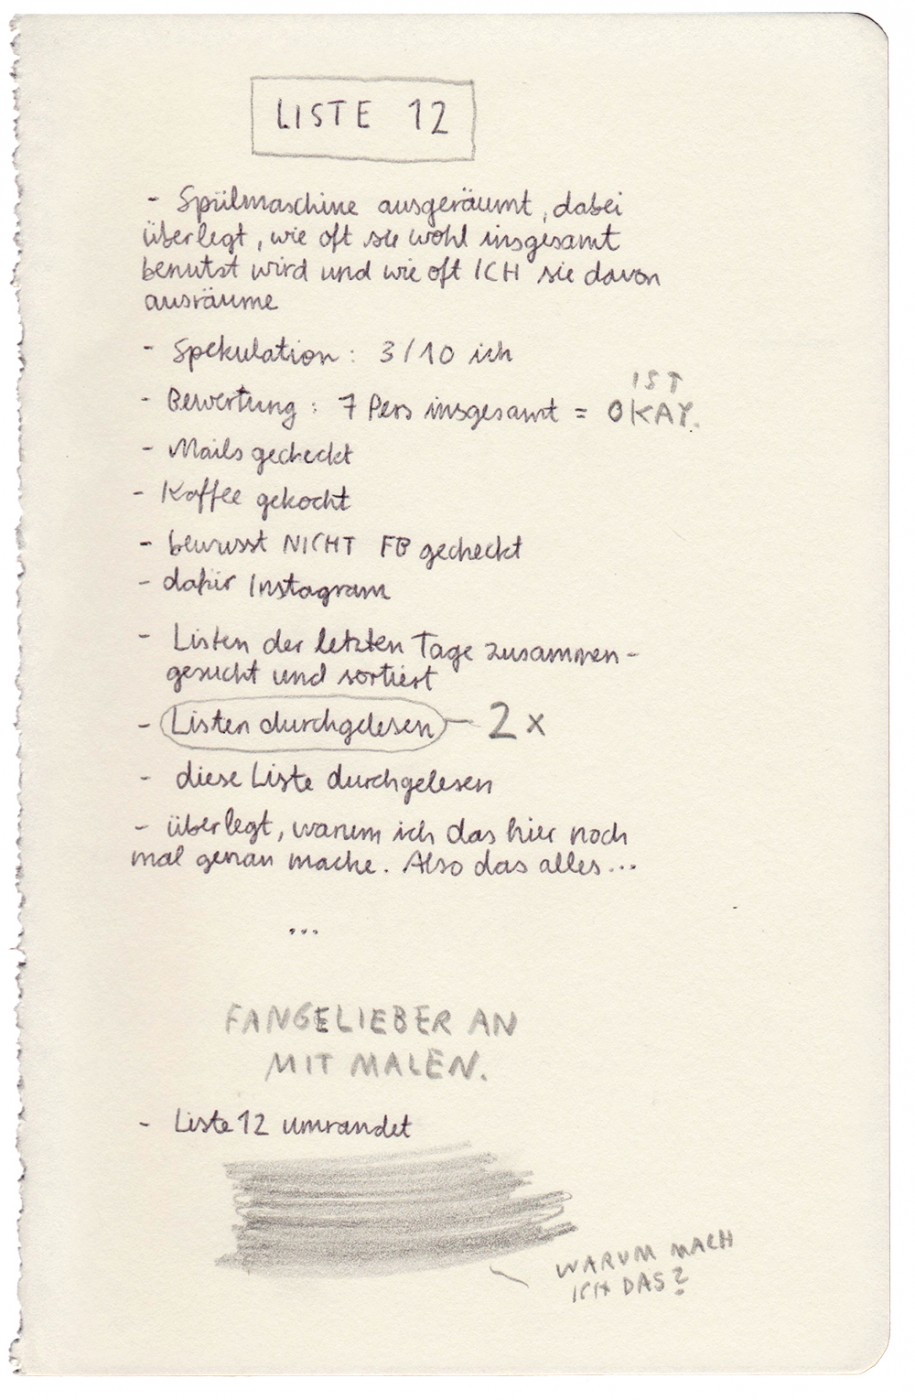 LISTE 12
- Spülmaschine ausgeräumt, dabei
überlegt, wie oft sie wohl insgesamt
benutzt wird und wie oft ICH sie davon
ausräume
- Spekulation: 3/10 ich
- Bewertung: 7 Pers insgesamt = IST OKAY.
- Mails gecheckt
- Kaffee gekocht
- bewusst NICHT FB gecheckt
- dafür Instagram
- Listen der letzten Tage zusammen-
gesucht und sortiert
- Listen durchgelesen — 2x
- diese Liste durchgelesen
- überlegt, warum ich das hier noch
mal genau mache. Also das alles...
...
FANGE LIEBER AN
MIT MALEN.
- Liste 12 umrandet
WARUM MACH
ICH DAS?